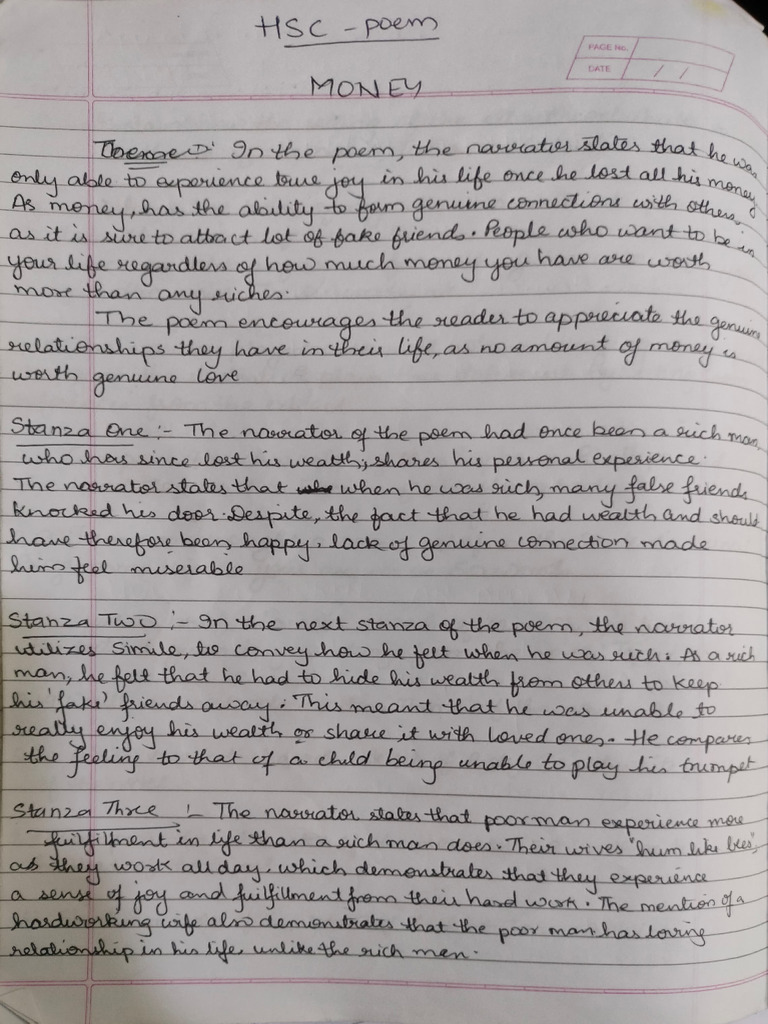 HSC - poem
PAGE No.
DATE / /
MONEY
Theme :- In the poem, the narrator states that he was
only able to experience true joy in his life once he lost all his money
As money, has the ability to form genuine connections with others,
as it is sure to attract lot of fake friends. People who want to be in
your life regardless of how much money you have are worth
more than any riches.
The poem encourages the reader to appreciate the genuine
relationships they have in their life, as no amount of money is
worth genuine love
Stanza One :- The narrator of the poem had once been a rich man,
who has since lost his wealth, shares his personal experience.
The narrator states that when he was rich, many false friends
knocked his door. Despite, the fact that he had wealth and should
have therefore been happy, lack of genuine connection made
him feel miserable
Stanza Two :- In the next stanza of the poem, the narrator
utilizes simile, to convey how he felt when he was rich. As a rich
man, he felt that he had to hide his wealth from others to keep
his 'fake' friends away. This meant that he was unable to
really enjoy his wealth or share it with loved ones. He compares
the feeling to that of a child being unable to play his trumpet
Stanza Three :- The narrator states that poor man experience more
fulfillment in life than a rich man does. Their wives "hum like bees",
as they work all day, which demonstrates that they experience
a sense of joy and fulfillment from their hard work. The mention of a
hardworking wife also demonstrates that the poor man has loving
relationship in his life, unlike the rich men.